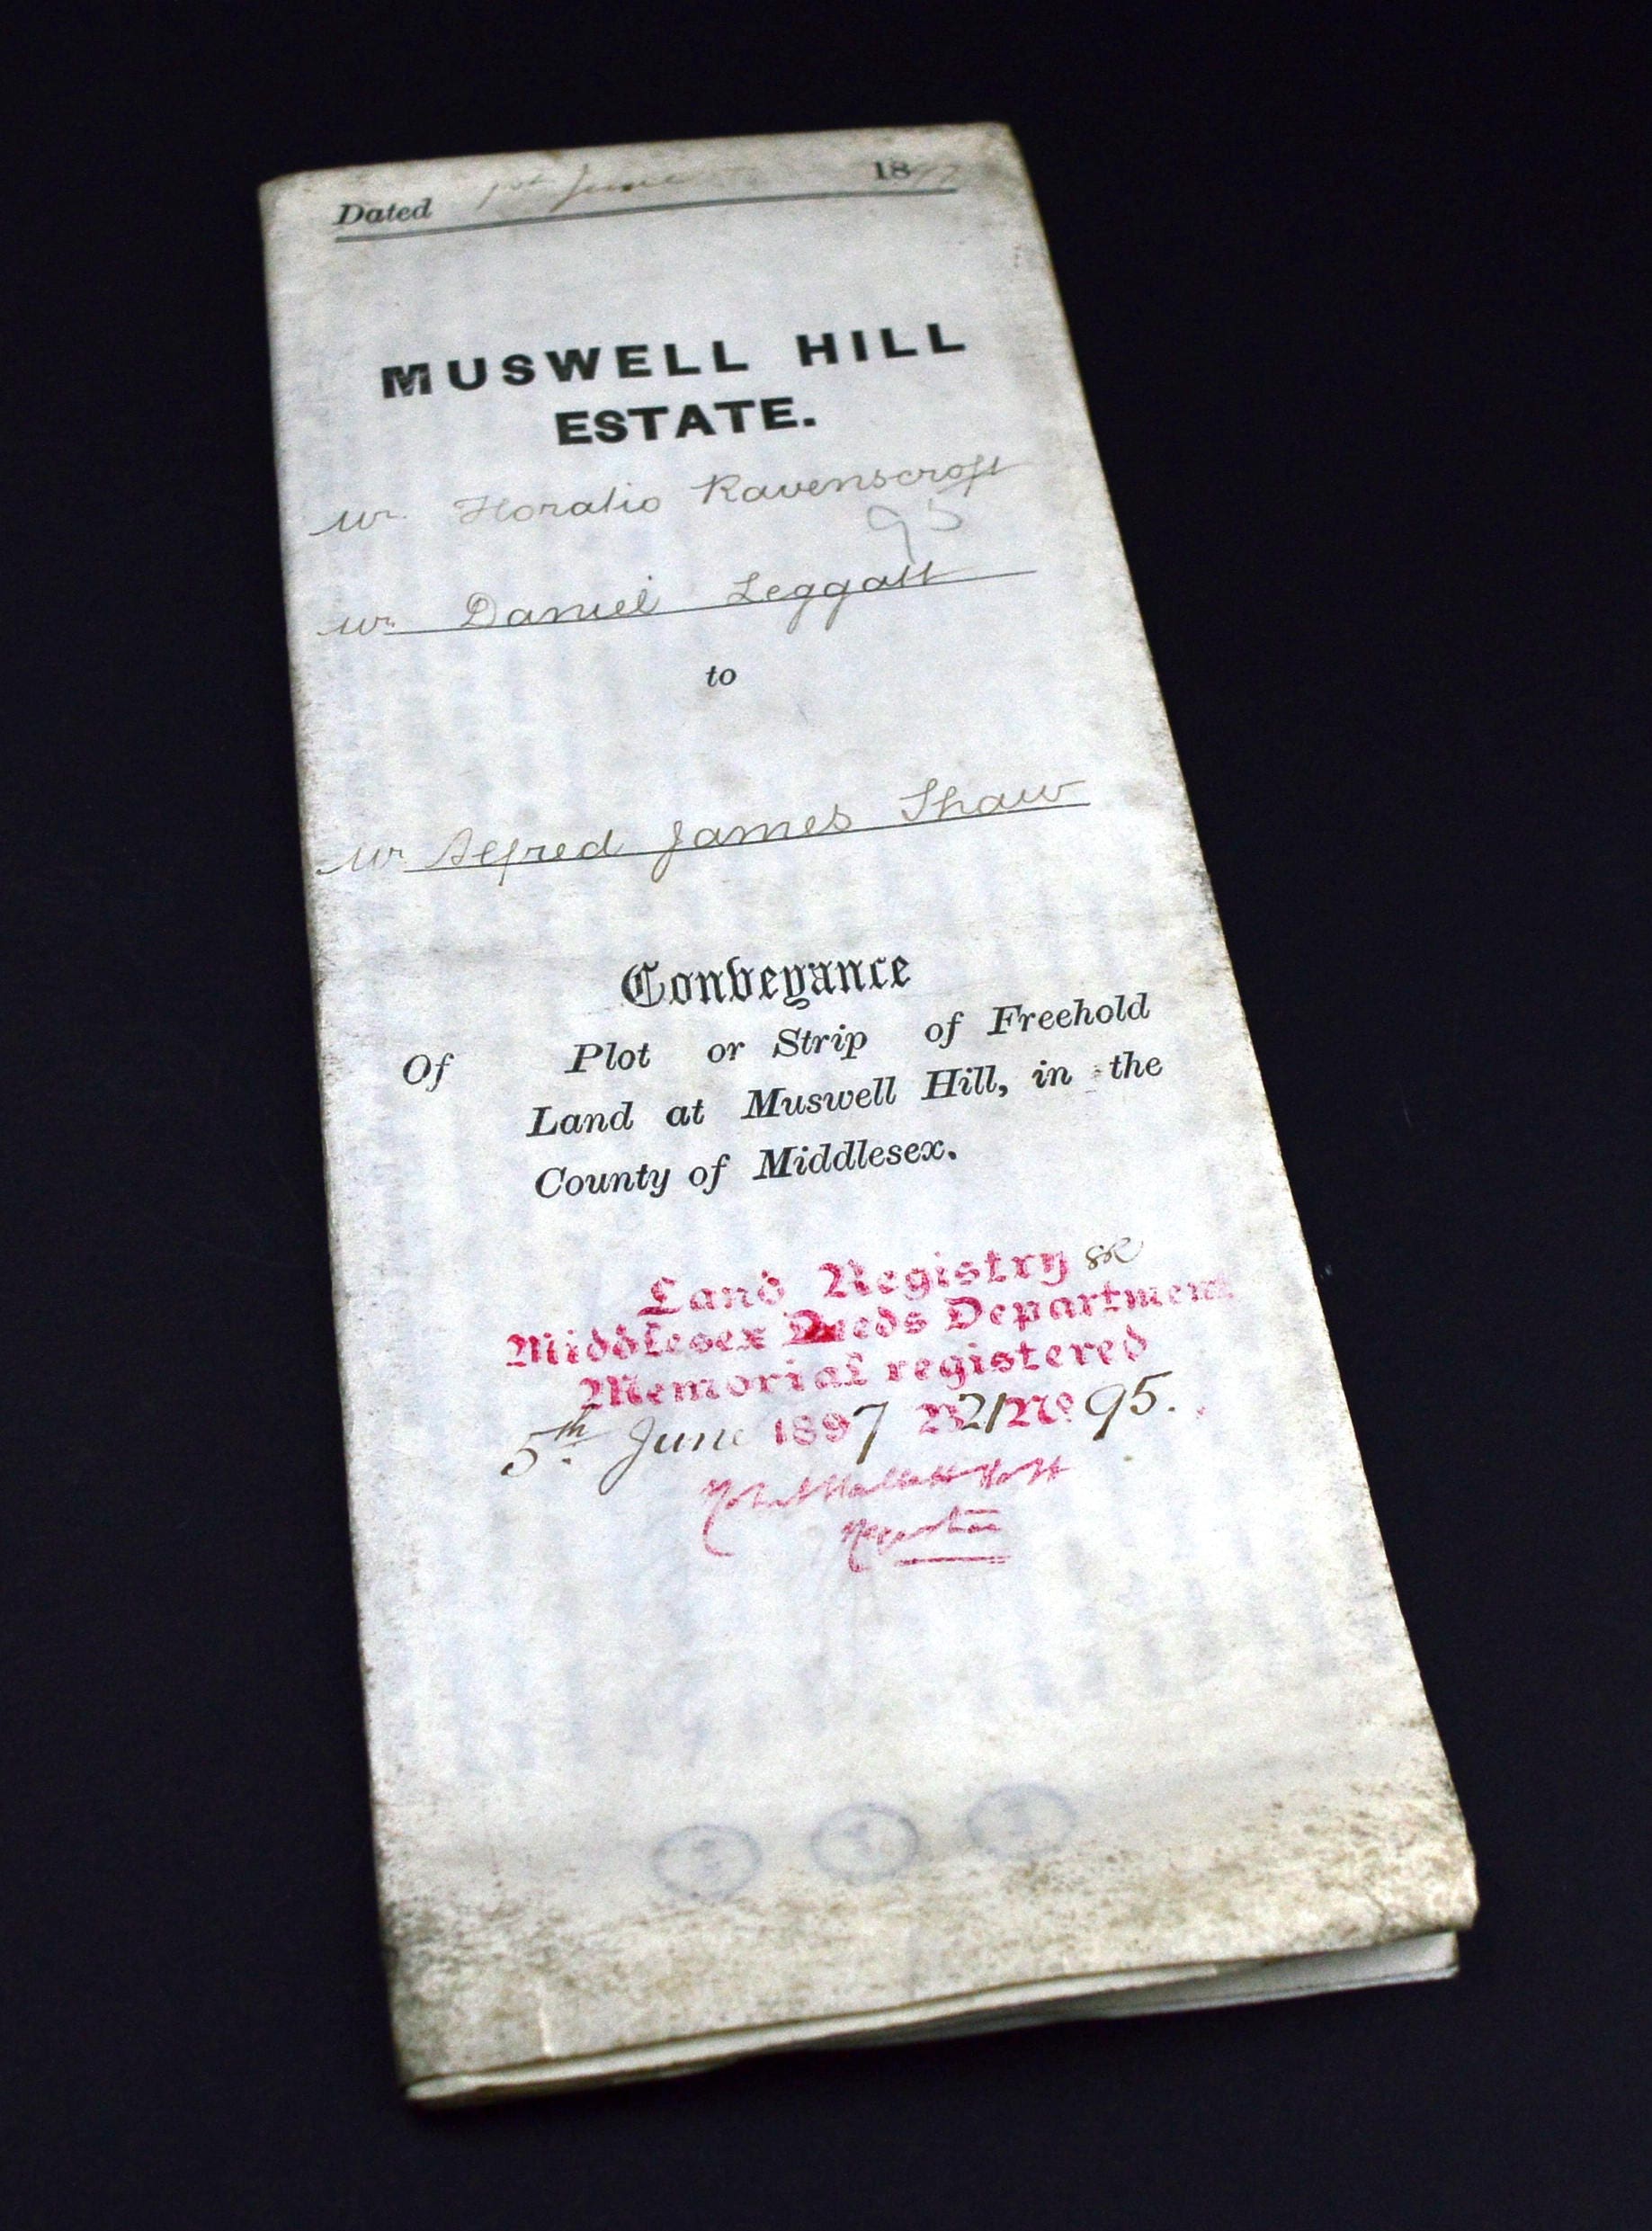 Dated 1st June 1897
MUSWELL HILL
ESTATE.
Mr. Horatio Ravenscroft
95
Mr. Daniel Leggatt
to
Mr Alfred James Shaw
Conveyance
Of Plot or Strip of Freehold
Land at Muswell Hill, in the
County of Middlesex.
Land Registry SR
Middlesex Deeds Department
Memorial registered
5th June 1897 B21 No 95.